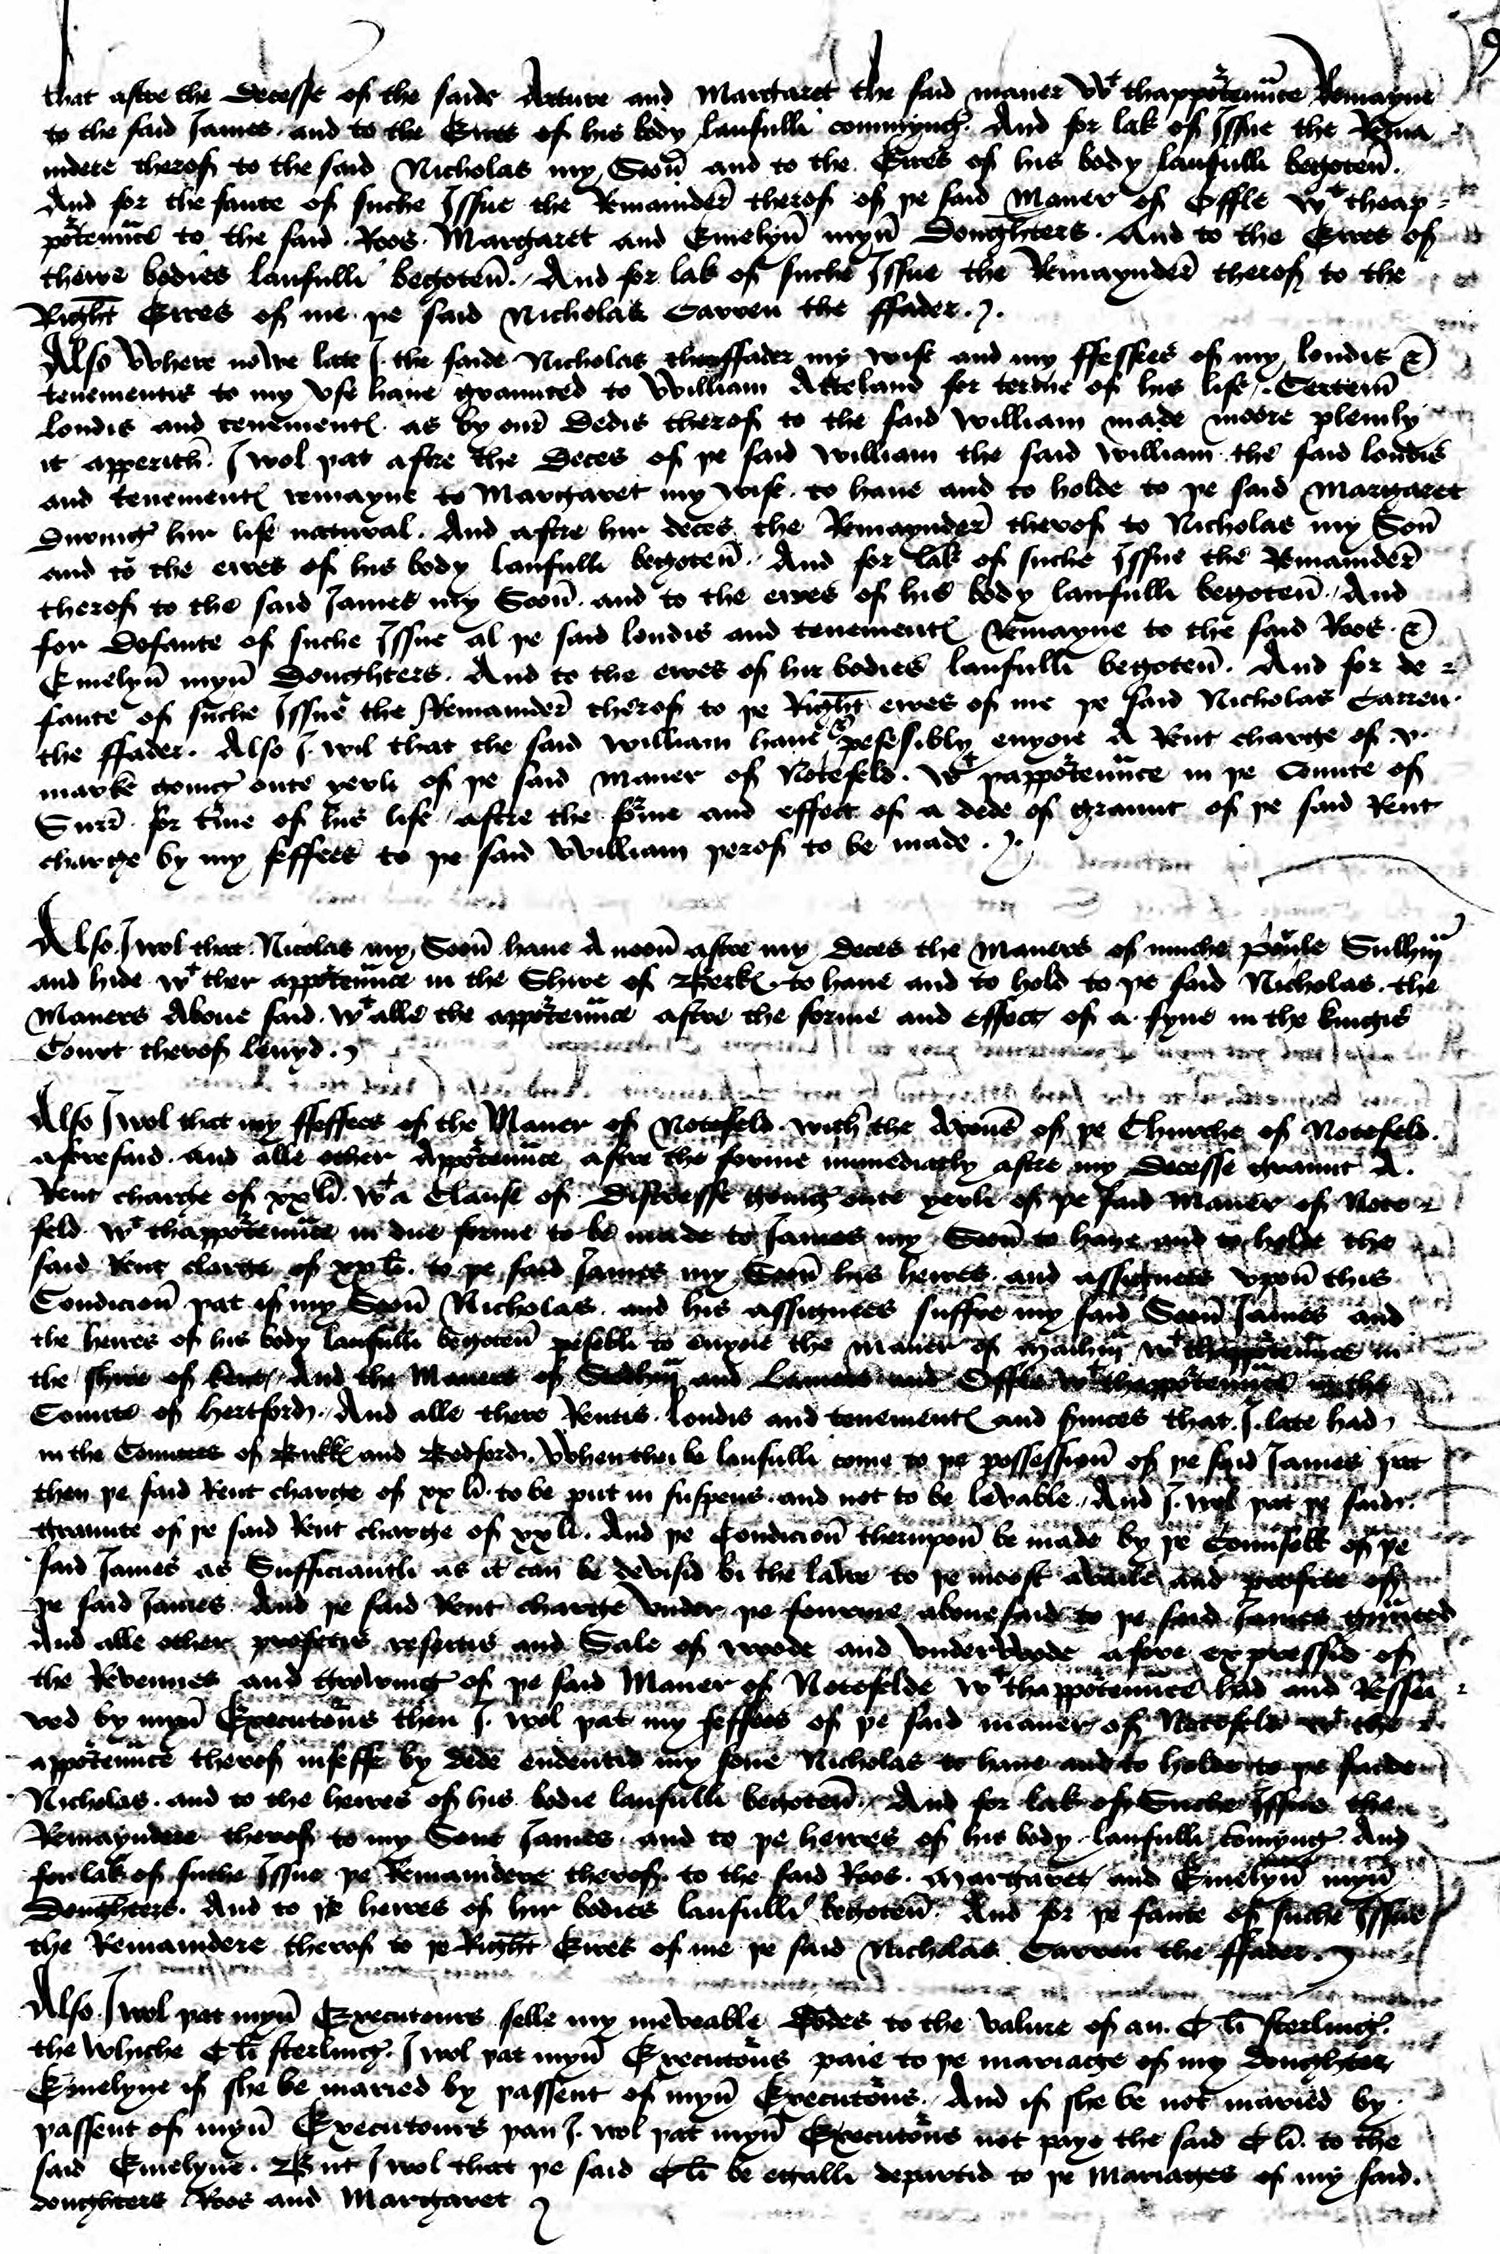 that aftre the Decesse of the saide Arture and Margaret the said maner Wt thapportenᵃnce Remayne
to the said James and to the Eires of his body laufulli commyng. And for lak of Issue the Rema
indere therof to the said Nicholas my Soon and to the Eires of his body laufulli begoten.
And for the faute of suche Issue the Remainder therof of þe said Maner of Offle Wt theap
portenᵃnce to the said Roos Margaret and Emelyn myn Doughters. And to the Eires of
theire bodies laufulli begoten. And for lak of suche Issue the Remaynder therof to the
Right Eires of me þe said Nicholas Carren the ffader.
Also Where nowe late I the saide Nicholas the ffader my wife and my ffeffees of my londis &
tenementis to my Vse haue graunted to William Atteland for terme of his life. Certein
Londis and tenement as by our Dedis therof to the said William made moore pleinly
it apperith. I wol þat aftre the Deces of þe said William the said William the said londis
and tenement remayne to Margaret my wife to haue and to holde to þe said Margaret
During hir life natural. And aftre hir deces the Remaynder therof to Nicholas my Soon
and to the eires of his body laufulli begoten. And for lak of suche Issue the Remainder
therof to the said James my Soon and to the eires of his body laufulli begoten. And
for Defaute of suche Issue al þe said londis and tenement Remayne to the said Roos &
Emelyn myn Doughters. And to the eires of hir bodies laufulli begoten. And for de
faute of suche Issue the Remainder therof to þe Right eires of me þe said Nicholas Carren
the ffader. Also I wil that the said William haue & pesesibly enyoie A Rent charge of .v.
marke going oute yerli of þe said Maner of Notefeld Wt þapportenᵃnce in þe Counte of
Surr for tme of his life aftre the forme and effect of a dede of graunt of þe said Rent
charge by my feffees to þe said William þerof to be made.
Also I wol that Nicolas my Soon haue Anoon aftre my deces the Maners of muche Purle Sulhm
and hide Wt ther apportenᵃnce in the Shire of Berk to haue and to hold to þe said Nicholas the
Maners Aboue said Wt alle the apportenᵃnce aftre the forme and effect of a fyne in the kingis
Court therof leuyd.
Also I wol that my ffeffees of the Maner of Notefeld with the Avous of þe Churche of Notefeld
aforesaid and alle other Apportenᵃnce aftre the forme immediatly aftre my Decesse graunt A
Rent charge of xx li Wt a Clause of Distresse going oute yerli of þe said Maner of Note
feld Wt thapportenᵃnce in due forme to be made to James my Soon to haue and to holde the
said Rent charge of xx li to þe said James my Soon his heires and assignees vpon this
Condicion þat if my Soon Nicholas and his assignees suffre my said Soon James and
the heires of his body laufulli begoten pesebli to enyoie the maner of Wt thapportenᵃnces in
the shire of kent And the Maners of and and Offle Wt thapportenᵃnce in the
Counte of hertford. And alle there Rentis londis and tenement and seruices that I late had
in the Countees of Bukk and Bedford. When thei be laufulli come to þe possession of þe said James þat
then þe said Rent charge of xx li to be put in suspens and not to be levable. And I wol þat þe said
graunte of þe said Rent charge of xx li. And þe Condicion therupon be made by þe Counsell of þe
said James as Sufficiantli as it can be devisid bi the lawe to þe moost availe and profite of
þe said James. And þe said Rent charge Vnder þe fourme aboue said to þe said James graunted
And alle other profettis and Sale of woode and Vnderwode afore expressid of
the Revenues and growing of þe said Maner of Notefelde Wt thapportenᵃnce had and Ressei
ved by myn Executours then I wol þat my feffees of þe said maner of Notefeld Wt the
apportenᵃnce therof infeffe by dede endentid my sone Nicholas to haue and to holde to þe saide
Nicholas and to the heires of his bodie laufulli begoten. And for lak of Suche Issue the
Remayndere therof to my Sone James and to þe heires of his body laufulli comyng. And
for lak of suche Issue þe Remaindere therof to the said Roos Margaret and Emelyn myn
Doughters. And to þe heires of hir bodies laufulli begoten. And for þe faute of suche Issue
the Remaindere therof to þe Right Eires of me þe said Nicholas Carren the ffader.
Also I wol þat myn Executours selle my meveable Godes to the Valure of an C li sterling.
the Whiche C li sterling I wol þat myn Executours paie to þe mariage of my doughter
Emelyne if she be maried by þassent of myn Executours. And if she be not maried by
þassent of myn Executours þan I wol þat myn Executours not paye the said C li to the
said Emelyne. But I wol that þe said C li be egalli departid to þe Mariages of my said
doughters Roos and Margaret